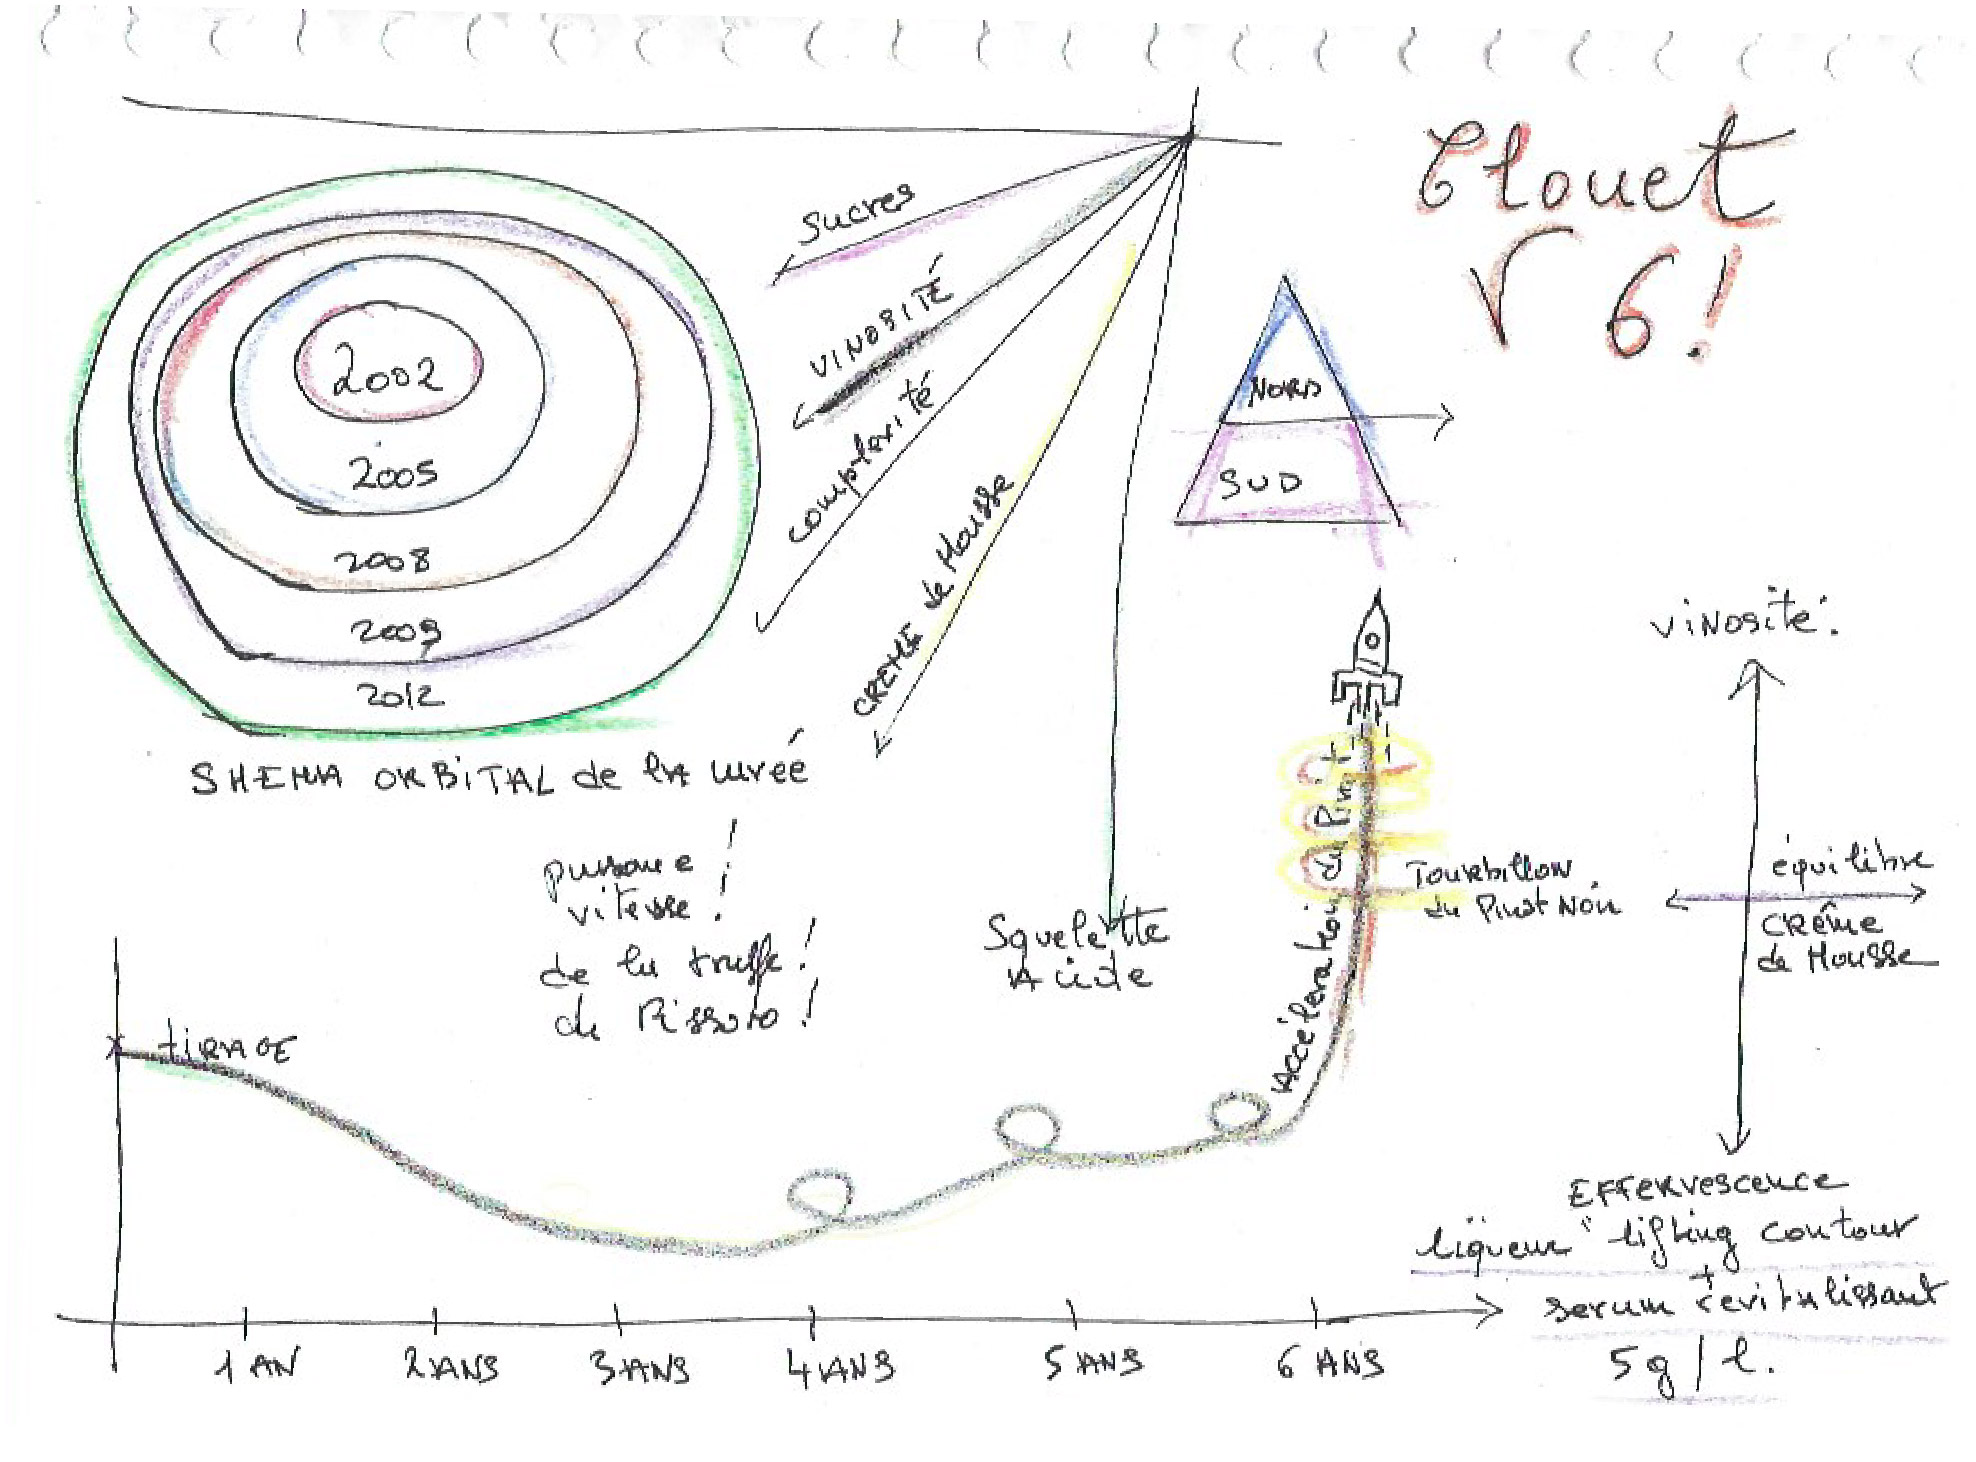 Clouet
V6!
Sucres
VINOSITÉ
complexité
CREME de Mousse
Squelette
Acide
NORD
SUD
2002
2005
2008
2009
2012
SHEMA ORBITAL de la cuvée
puissance !
vitesse !
de la truffe !
de Rissoto !
Accélération du Pinot
Tourbillon
du Pinot Noir
vinosité:
équilibre
crême
de Mousse
Effervescence
liqueur "lifting contour
+
serum revitalissant
5g/l.
tirage
1 AN
2 ANS
3 ANS
4 ANS
5 ANS
6 ANS